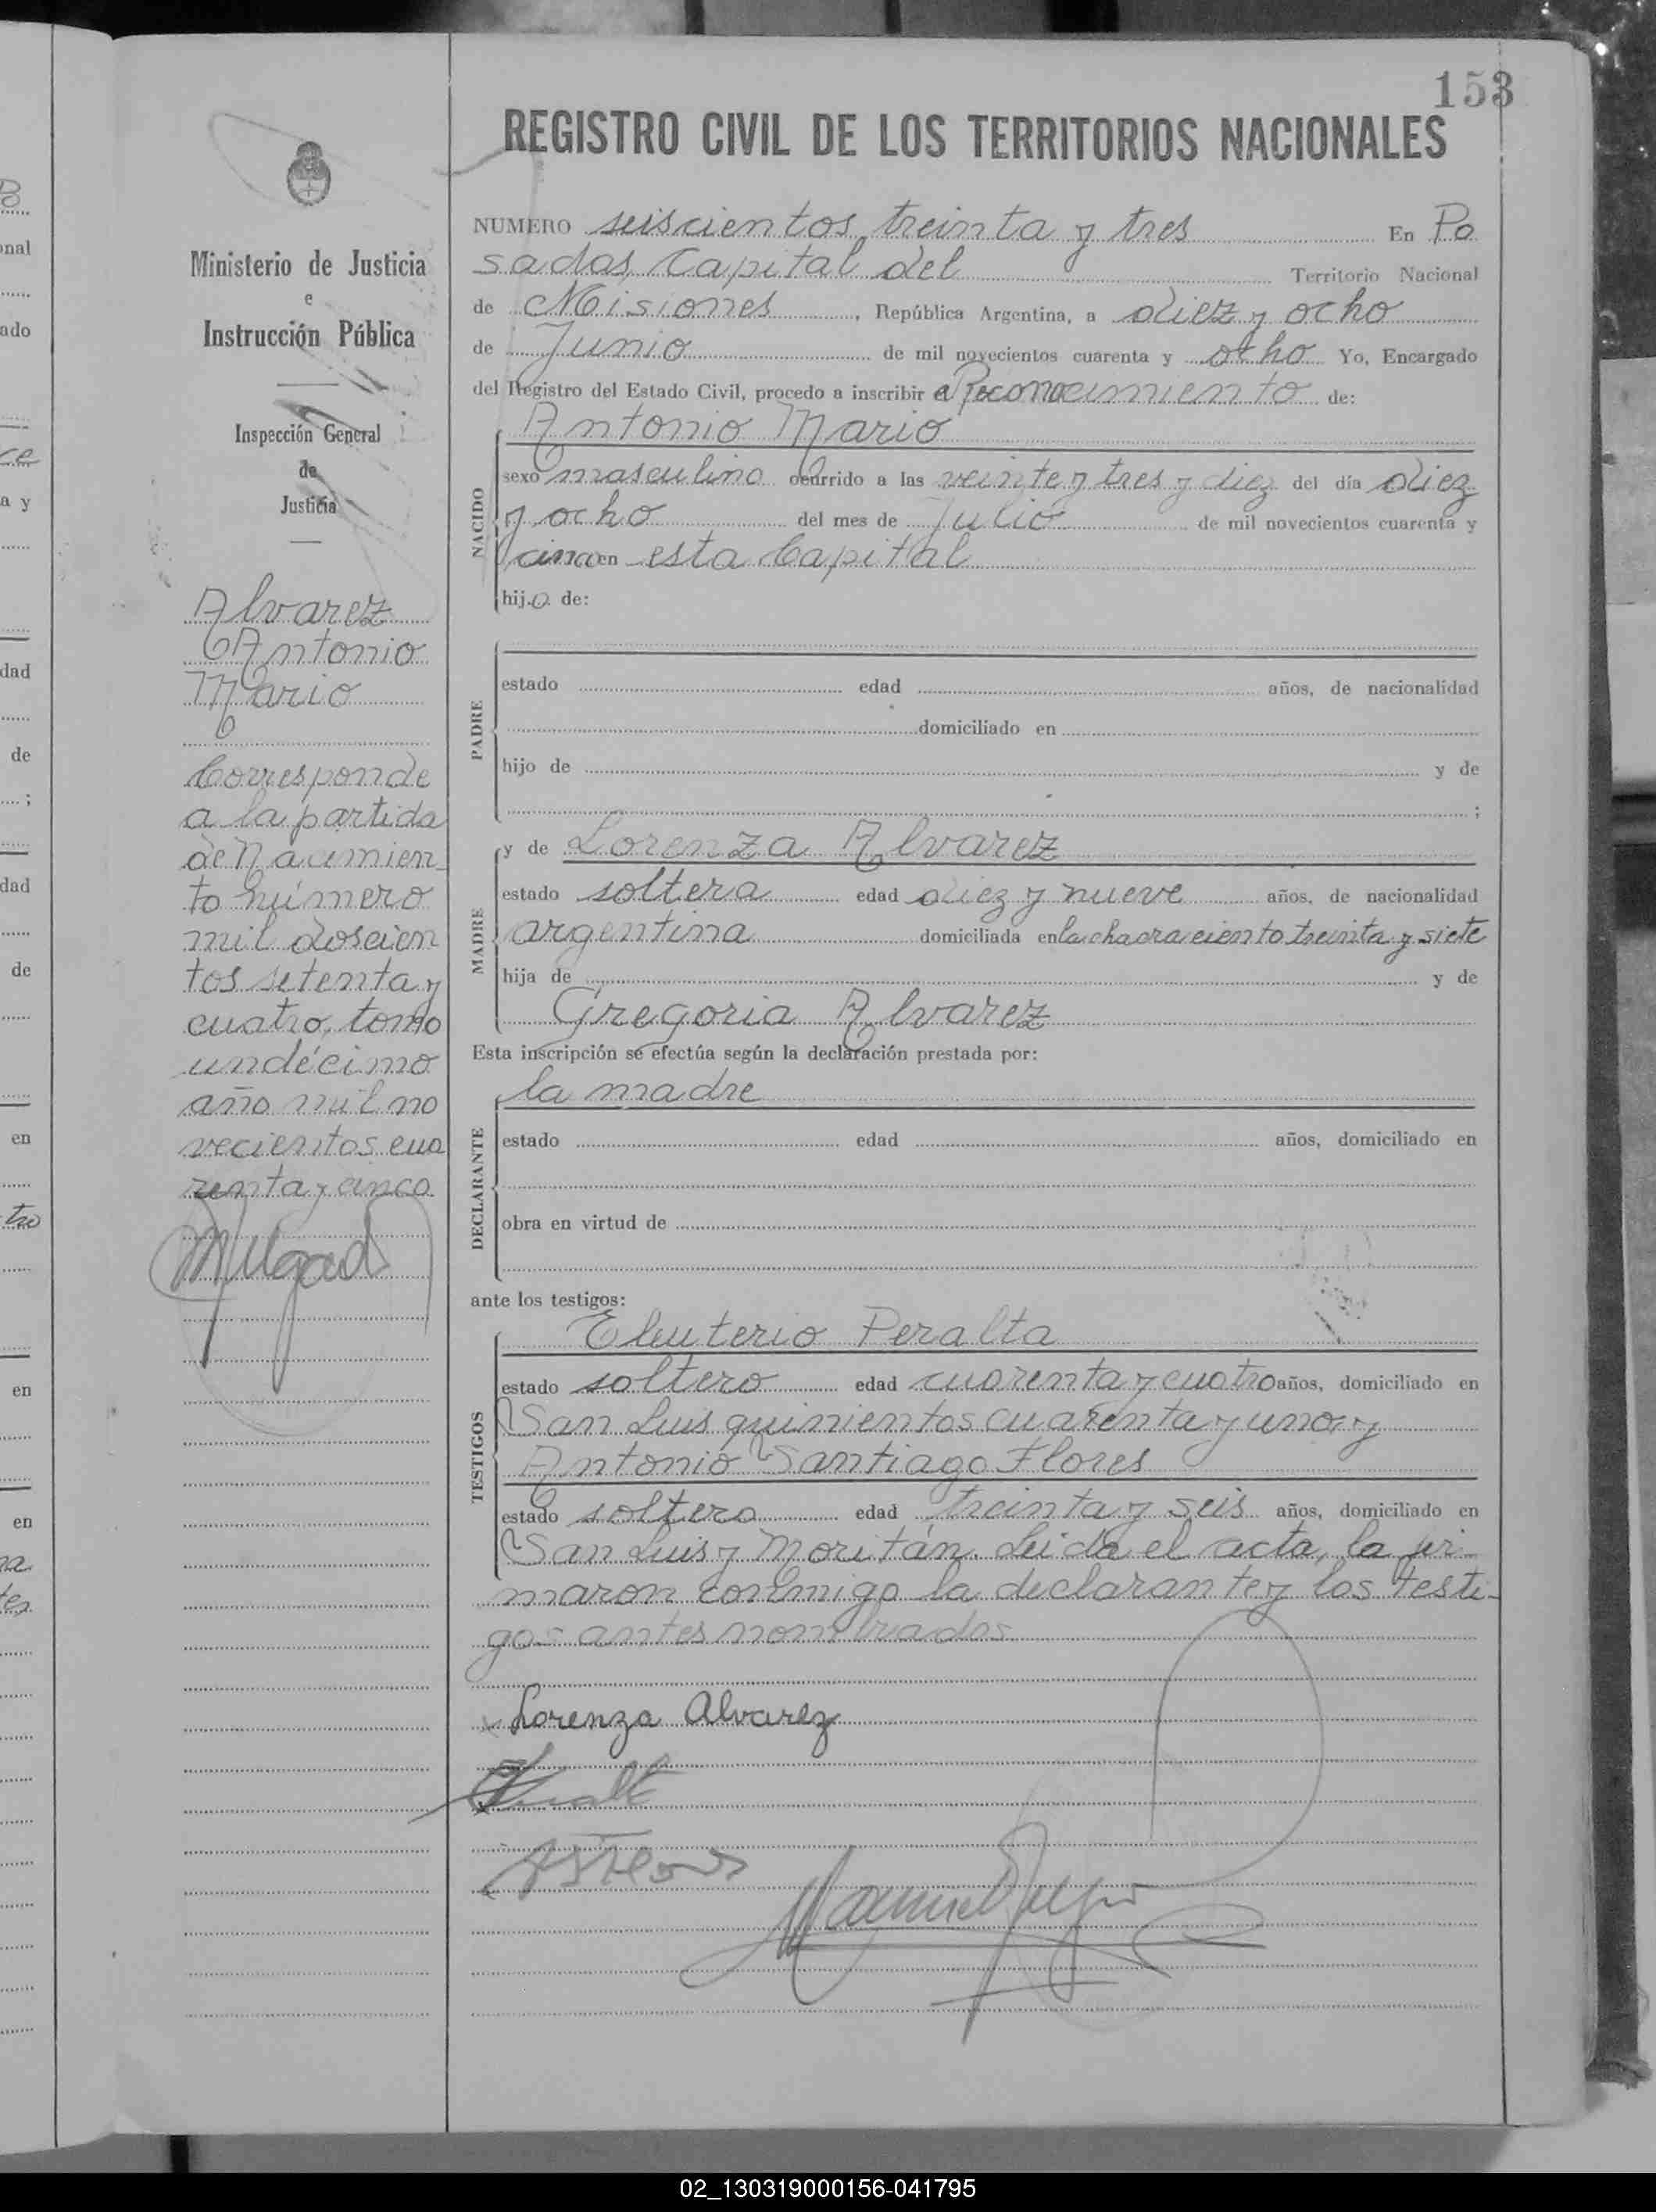 153
REGISTRO CIVIL DE LOS TERRITORIOS NACIONALES
Ministerio de Justicia
e
Instrucción Pública
Inspección General
de
Justicia
Alvarez
Antonio
Mario
Corresponde
a la partida
de Nacimien
to número
mil doscien
tos setenta y
cuatro, tomo
undécimo
año mil no
vecientos cua
renta y cinco
NUMERO seiscientos treinta y tres En Po
sadas, Capital del Territorio Nacional
de Misiones, República Argentina, a diez y ocho
de Junio de mil novecientos cuarenta y ocho Yo, Encargado
del Registro del Estado Civil, procedo a inscribir el Reconocimiento de:
NACIDO
Antonio Mario
sexo masculino ocurrido a las veinte y tres y diez del día diez
y ocho del mes de Julio de mil novecientos cuarenta y
cinco en esta Capital
hijo de:
PADRE
estado edad años, de nacionalidad
domiciliado en
hijo de y de
;
MADRE
y de Lorenza Alvarez
estado soltera edad diez y nueve años, de nacionalidad
argentina domiciliada en la chacra ciento treinta y siete
hija de y de
Gregoria Alvarez
Esta inscripción se efectúa según la declaración prestada por:
DECLARANTE
la madre
estado edad años, domiciliado en
obra en virtud de
ante los testigos:
TESTIGOS
Eleuterio Peralta
estado soltero edad cuarenta y cuatro años, domiciliado en
San Luis quinientos cuarenta y uno, y
Antonio Santiago Flores
estado soltero edad treinta y seis años, domiciliado en
San Luis y Moritán. Leida el acta, la fir-
maron conmigo la declarante y los testi-
gos antes nombrados
Lorenza Alvarez
nal
ado
ce
a y
dad
de
;
dad
de
en
tro
en
en
02_130319000156-041795